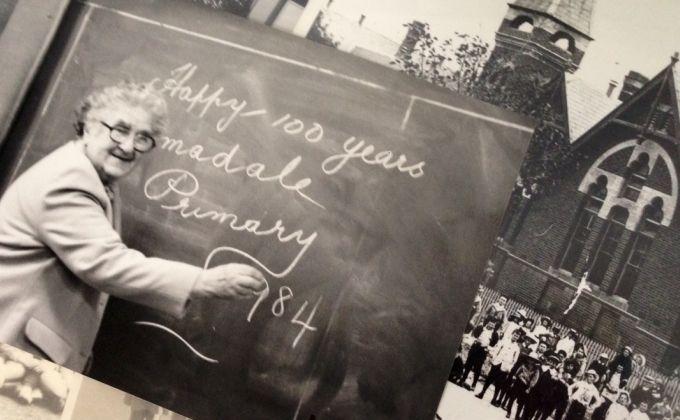 Happy 100 years
madale
Primary
984